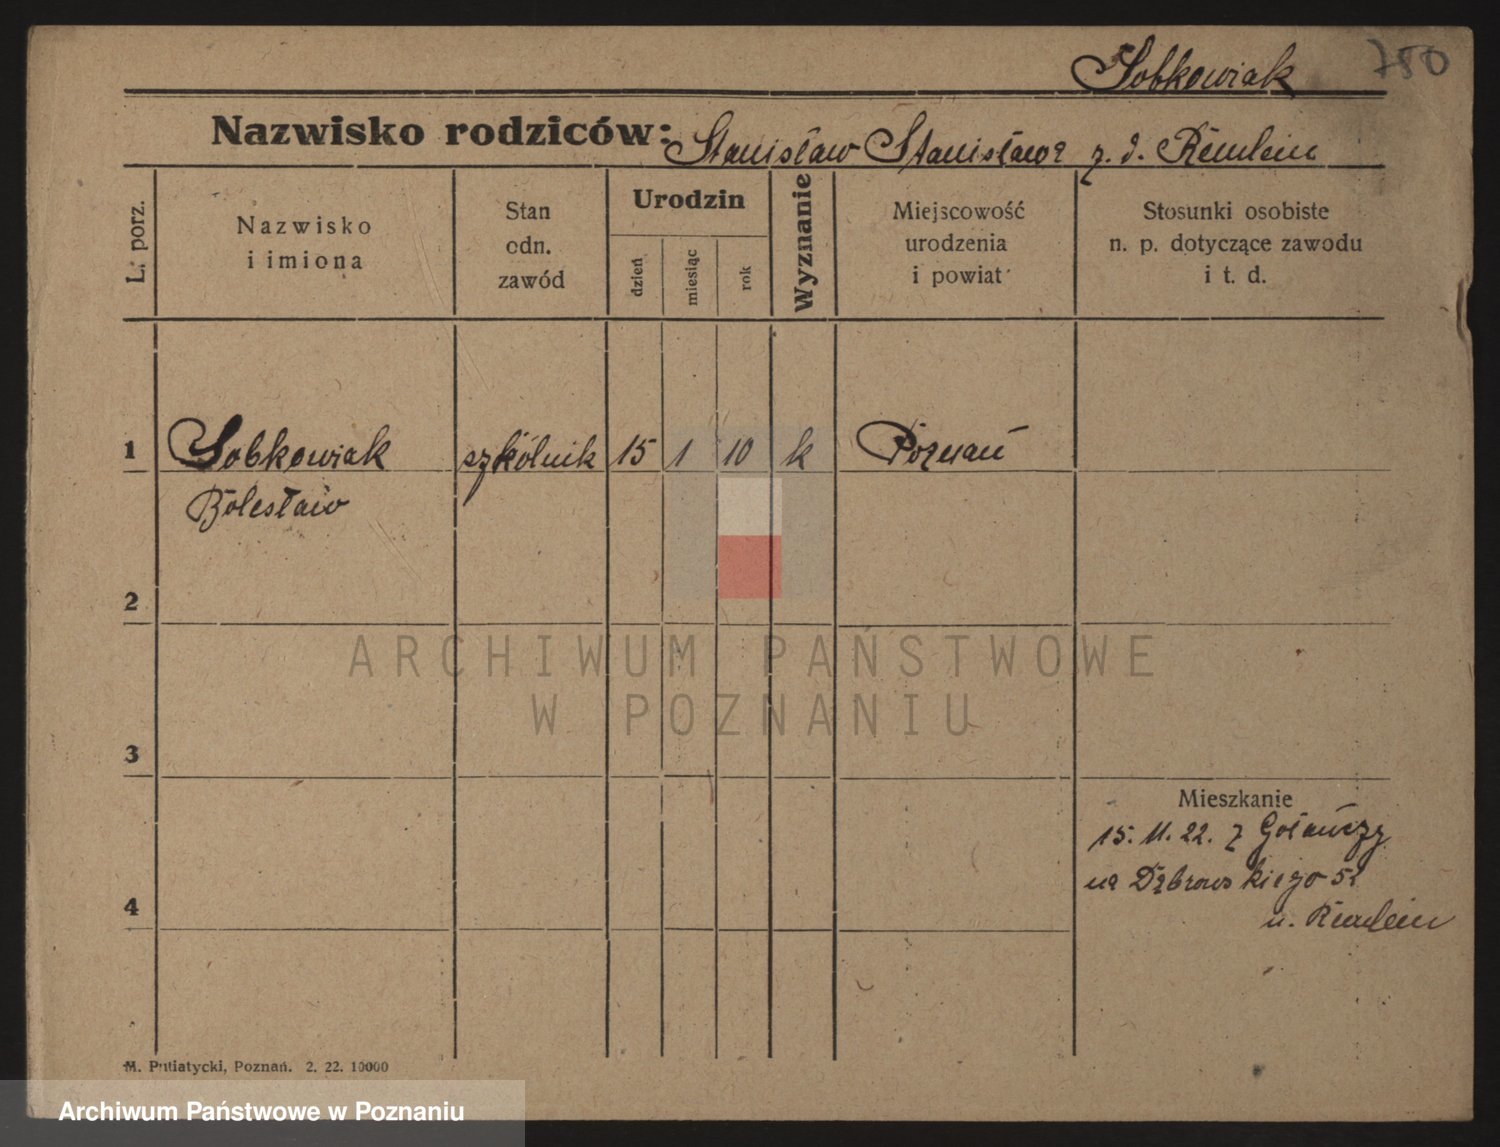 Sobkowiak 780
Nazwisko rodziców: Stanisław Stanisława z. d. Remlein
L. porz.
Nazwisko
i imiona
Stan
odn.
zawód
Urodzin
dzień
miesiąc
rok
Wyznanie
Miejscowość
urodzenia
i powiat
Stosunki osobiste
n. p. dotyczące zawodu
i t. d.
1 Sobkowiak szkólnik 15 1 10 k Poznań
Bolesław
2
ARCHIWUM PAŃSTWOWE
W POZNANIU
3
Mieszkanie
15. 11. 22. z Gołańczy
na Dąbrowskiego 52
u. Remlein
4
M. Putiatycki, Poznań. 2. 22. 10000
Archiwum Państwowe w Poznaniu